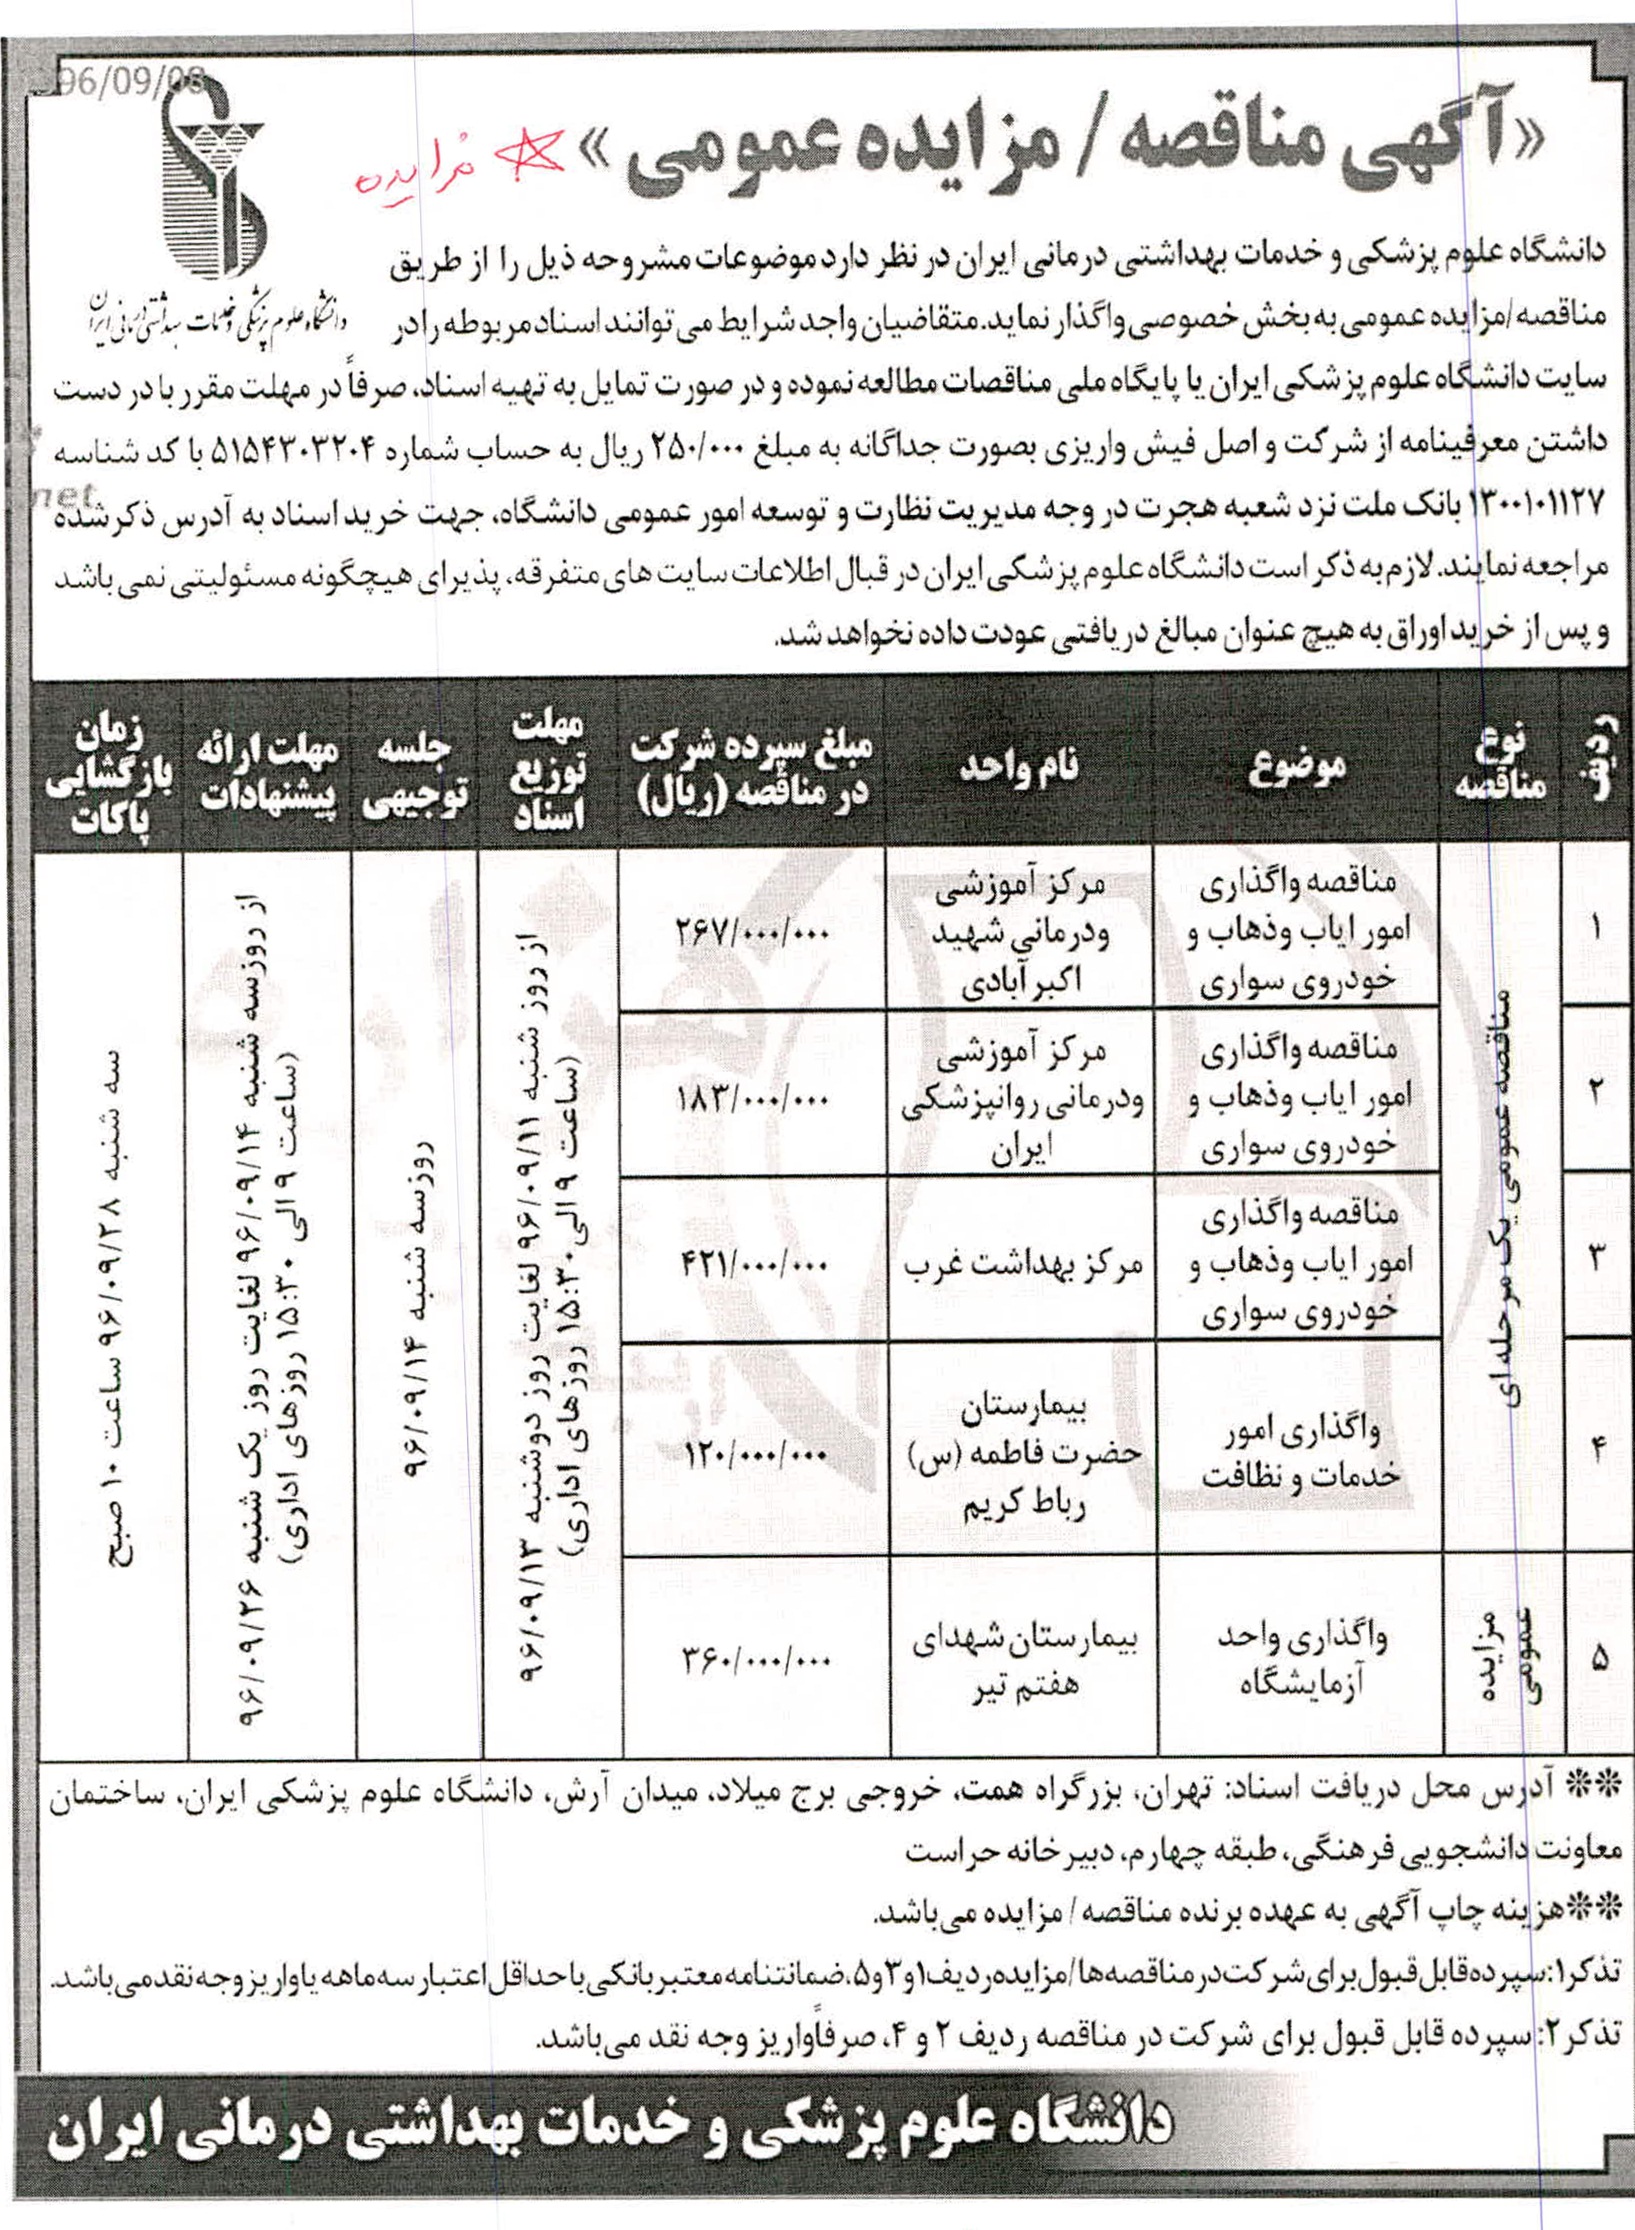 96/09/08
«آگهی مناقصه / مزایده عمومی»
مزایده
دانشگاه علوم پزشکی و خدمات بهداشتی درمانی ایران
دانشگاه علوم پزشکی و خدمات بهداشتی درمانی ایران در نظر دارد موضوعات مشروحه ذیل را از طریق
مناقصه/مزایده عمومی به بخش خصوصی واگذار نماید. متقاضیان واجد شرایط می توانند اسناد مربوطه را در
سایت دانشگاه علوم پزشکی ایران یا پایگاه ملی مناقصات مطالعه نموده و در صورت تمایل به تهیه اسناد، صرفاً در مهلت مقرر با در دست
داشتن معرفینامه از شرکت و اصل فیش واریزی بصورت جداگانه به مبلغ ۲۵۰/۰۰۰ ریال به حساب شماره ۵۱۵۴۳۰۳۲۰۴ با کد شناسه
۱۳۰۰۱۰۱۱۲۷ بانک ملت نزد شعبه هجرت در وجه مدیریت نظارت و توسعه امور عمومی دانشگاه، جهت خرید اسناد به آدرس ذکر شده
net
مراجعه نمایند. لازم به ذکر است دانشگاه علوم پزشکی ایران در قبال اطلاعات سایت های متفرقه، پذیرای هیچگونه مسئولیتی نمی باشد
و پس از خرید اوراق به هیچ عنوان مبالغ دریافتی عودت داده نخواهد شد.
ردیف
نوع
مناقصه
موضوع
نام واحد
مبلغ سپرده شرکت
در مناقصه (ریال)
مهلت
توزیع
اسناد
جلسه
توجیهی
مهلت ارائه
پیشنهادات
زمان
بازگشایی
پاکات
۱
مناقصه عمومی یک مرحله ای
مناقصه واگذاری
امور ایاب وذهاب و
خودروی سواری
مرکز آموزشی
ودرمانی شهید
اکبرآبادی
۲۶۷/۰۰۰/۰۰۰
از روز شنبه ۹۶/۰۹/۱۱ لغایت روز دوشنبه ۹۶/۰۹/۱۳
(ساعت ۹ الی ۱۵:۳۰ روزهای اداری)
روزسه شنبه ۹۶/۰۹/۱۴
از روزسه شنبه ۹۶/۰۹/۱۴ لغایت روز یک شنبه ۹۶/۰۹/۲۶
(ساعت ۹ الی ۱۵:۳۰ روزهای اداری)
سه شنبه ۹۶/۰۹/۲۸ ساعت ۱۰ صبح
۲
مناقصه واگذاری
امور ایاب وذهاب و
خودروی سواری
مرکز آموزشی
ودرمانی روانپزشکی
ایران
۱۸۳/۰۰۰/۰۰۰
۳
مناقصه واگذاری
امور ایاب وذهاب و
خودروی سواری
مرکز بهداشت غرب
۴۲۱/۰۰۰/۰۰۰
۴
واگذاری امور
خدمات و نظافت
بیمارستان
حضرت فاطمه (س)
رباط کریم
۱۲۰/۰۰۰/۰۰۰
۵
مزایده
عمومی
واگذاری واحد
آزمایشگاه
بیمارستان شهدای
هفتم تیر
۳۶۰/۰۰۰/۰۰۰
** آدرس محل دریافت اسناد: تهران، بزرگراه همت، خروجی برج میلاد، میدان آرش، دانشگاه علوم پزشکی ایران، ساختمان
معاونت دانشجویی فرهنگی، طبقه چهارم، دبیرخانه حراست
**هزینه چاپ آگهی به عهده برنده مناقصه / مزایده می‌باشد.
تذکر۱: سپرده قابل قبول برای شرکت در مناقصه‌ها/مزایده ردیف ۱و۳و۵، ضمانتنامه معتبر بانکی با حداقل اعتبار سه ماهه یا واریز وجه نقد می باشد.
تذکر۲: سپرده قابل قبول برای شرکت در مناقصه ردیف ۲ و ۴، صرفاً واریز وجه نقد می‌باشد.
دانشگاه علوم پزشکی و خدمات بهداشتی درمانی ایران